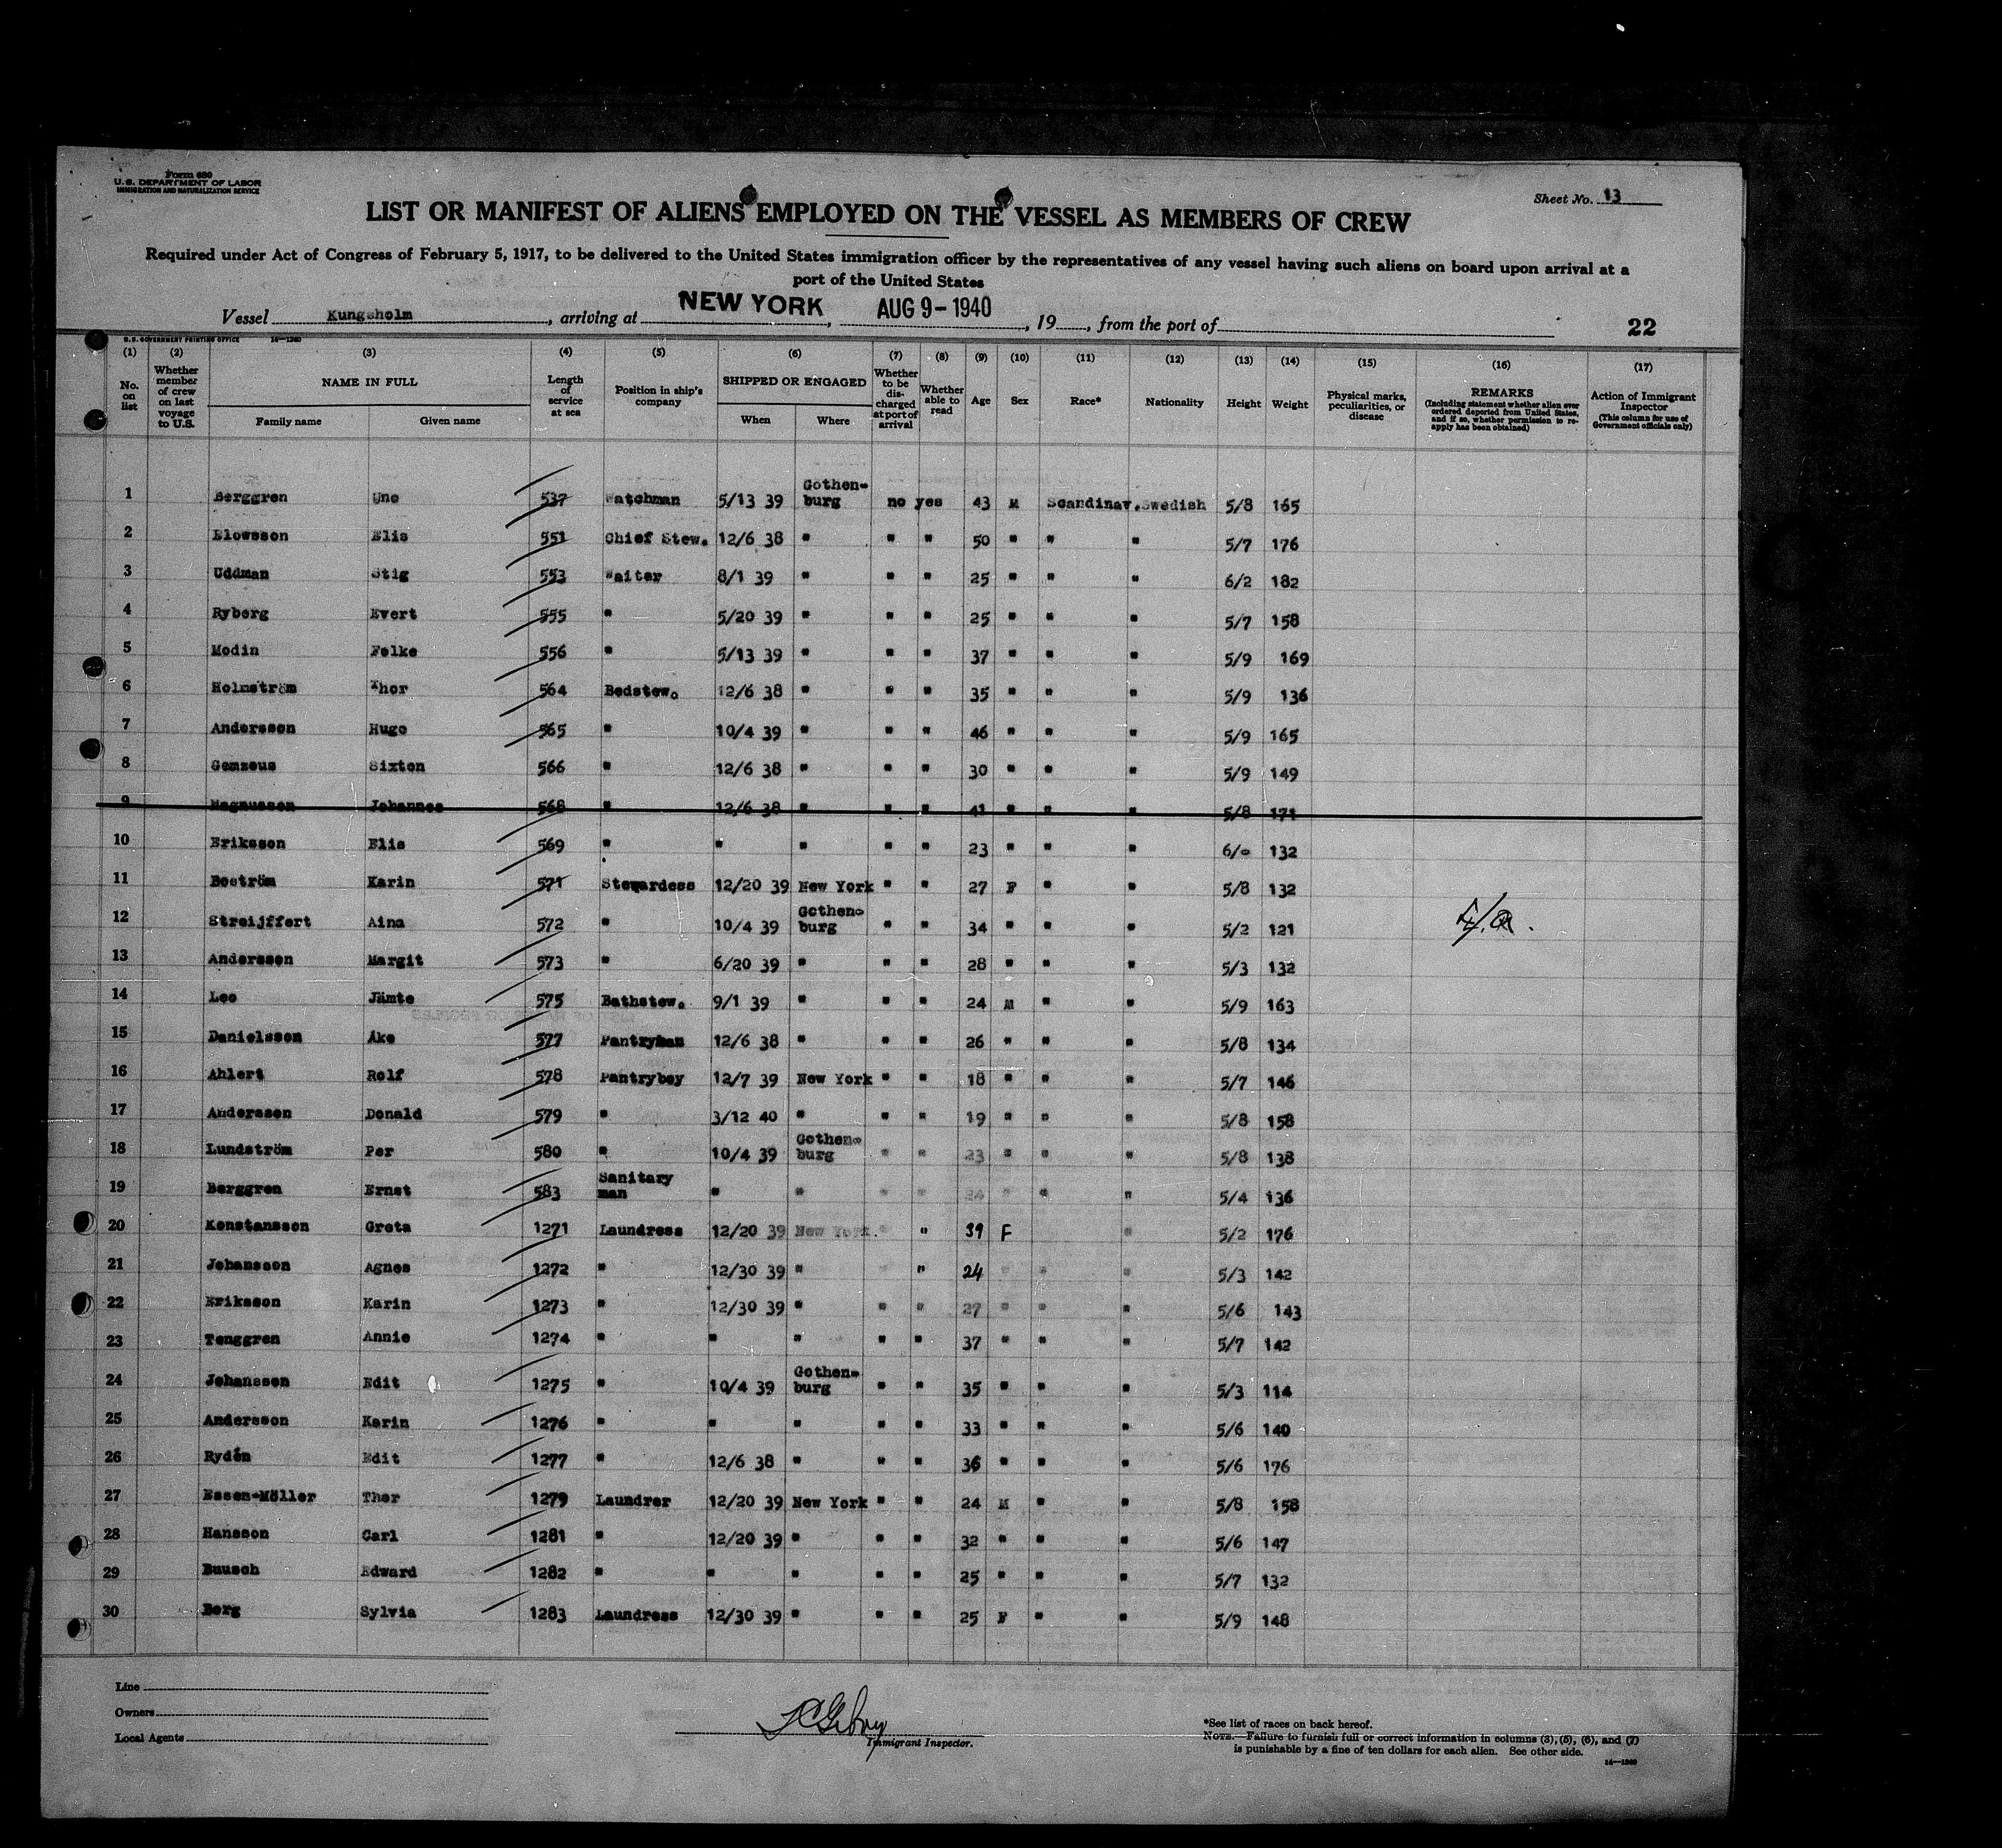 Form 680
U. S. DEPARTMENT OF LABOR
IMMIGRATION AND NATURALIZATION SERVICE
Sheet No. 13
LIST OR MANIFEST OF ALIENS EMPLOYED ON THE VESSEL AS MEMBERS OF CREW
Required under Act of Congress of February 5, 1917, to be delivered to the United States immigration officer by the representatives of any vessel having such aliens on board upon arrival at a
port of the United States
Vessel Kungsholm, arriving at NEW YORK, AUG 9 - 1940, 19, from the port of
22
U. S. GOVERNMENT PRINTING OFFICE 14—1360
(1) (2) (3) (4) (5) (6) (7) (8) (9) (10) (11) (12) (13) (14) (15) (16) (17)
No. on list
Whether member of crew on last voyage to U.S.
NAME IN FULL
Family name Given name
Length of service at sea
Position in ship's company
SHIPPED OR ENGAGED
When Where
Whether to be discharged at port of arrival
Whether able to read
Age
Sex
Race*
Nationality
Height
Weight
Physical marks, peculiarities, or disease
REMARKS
(Including statement whether alien ever ordered deported from United States, and if so, whether permission to re-apply has been obtained)
Action of Immigrant Inspector
(This column for use of Government officials only)
1 Berggren Uno 537 Watchman 5/13 39 Gothen-burg no yes 43 M Scandinav. Swedish 5/8 165
2 Elowsson Elis 551 Chief Stew. 12/6 38 " " " 50 " " " 5/7 176
3 Uddman Stig 553 Waiter 8/1 39 " " " 25 " " " 6/2 182
4 Ryberg Evert 555 " 5/20 39 " " " 25 " " " 5/7 158
5 Modin Folke 556 " 5/13 39 " " " 37 " " " 5/9 169
6 Holmström Thor 564 Bedstew. 12/6 38 " " " 35 " " " 5/9 136
7 Andersson Hugo 565 " 10/4 39 " " " 46 " " " 5/9 165
8 Gemzeus Sixten 566 " 12/6 38 " " " 30 " " " 5/9 149
9 Magnusson Johannes 568 " 12/6 38 " " " 41 " " " 5/8 171
10 Eriksson Elis 569 " " " " " 23 " " " 6/0 132
11 Boström Karin 571 Stewardess 12/20 39 New York " " 27 F " " 5/8 132
12 Streijffert Aina 572 " 10/4 39 Gothen-burg " " 34 " " " 5/2 121
13 Andersson Margit 573 " 6/20 39 " " " 28 " " " 5/3 132
14 Leo Jämte 575 Bathstew. 9/1 39 " " " 24 M " " 5/9 163
15 Danielsson Åke 577 Pantryman 12/6 38 " " " 26 " " " 5/8 134
16 Ahlert Rolf 578 Pantryboy 12/7 39 New York " " 18 " " " 5/7 146
17 Andersson Donald 579 " 3/12 40 " " " 19 " " " 5/8 158
18 Lundström Per 580 " 10/4 39 Gothen-burg " " 23 " " " 5/8 138
19 Berggren Ernst 583 Sanitary man " " " " 24 " " " 5/4 136
20 Konstansson Greta 1271 Laundress 12/20 39 New York " " 39 F " 5/2 176
21 Johansson Agnes 1272 " 12/30 39 " " " 24 " " " 5/3 142
22 Eriksson Karin 1273 " 12/30 39 " " " 27 " " " 5/6 143
23 Tenggren Annie 1274 " " " " " 37 " " " 5/7 142
24 Johansson Edit 1275 " 10/4 39 Gothen-burg " " 35 " " " 5/3 114
25 Andersson Karin 1276 " " " " " 33 " " " 5/6 140
26 Rydén Edit 1277 " 12/6 38 " " " 36 " " " 5/6 176
27 Essen-Möller Thor 1279 Laundrer 12/20 39 New York " " 24 M " " 5/8 158
28 Hansson Carl 1281 " 12/20 39 " " " 32 " " " 5/6 147
29 Buusch Edward 1282 " " " " " 25 " " " 5/7 132
30 Berg Sylvia 1283 Laundress 12/30 39 " " " 25 F " " 5/9 148
Line
Owners
Local Agents
Immigrant Inspector.
*See list of races on back hereof.
NOTE.—Failure to furnish full or correct information in columns (3), (5), (6), and (7)
is punishable by a fine of ten dollars for each alien. See other side.
14—1360